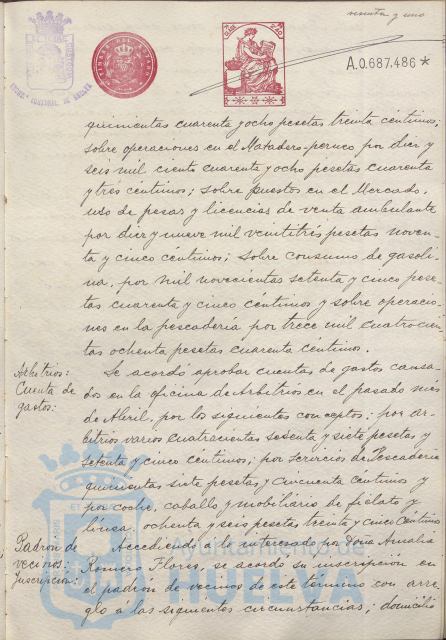 sesenta y uno
TIMBRE DEL ESTADO
CLASE 8ª
A.0.687.486 *
quinientas cuarenta y ocho pesetas treinta céntimos;
sobre operaciones en el Matadero-peruco por diez y
seis mil ciento cuarenta y ocho pesetas cuarenta
y tres céntimos; sobre puestos en el Mercado,
uso de pesar y licencias de venta ambulante
por diez y nueve mil veintitrés pesetas noven-
ta y cinco céntimos; sobre consumo de gasoli-
na, por mil novecientas setenta y cinco pese-
tas cuarenta y cinco céntimos y sobre operacio-
nes en la pescadería por trece mil cuatrocien-
tas ochenta pesetas cuarenta céntimos.
Arbitrios:
Cuenta de
gastos:
Se acordó aprobar cuentas de gastos causa-
dos en la oficina de Arbitrios en el pasado mes
de Abril, por los siguientes conceptos; por ar-
bitrios varios cuatrocientas sesenta y siete pesetas y
setenta y cinco céntimos; por servicios de Pescadería
quinientas siete pesetas y cincuenta céntimos y
por coche, caballo y mobiliario de fielato y
ochenta y seis pesetas treinta y cinco céntimos
Padrón de
vecinos:
Inscripción:
Accediendo a lo interesado por Doña Amalia
Romero Flores, se acordó su inscripción en
el padrón de vecinos de este término con arre-
glo á las siguientes circunstancias; domicilio
Ayuntamiento de
HUELVA